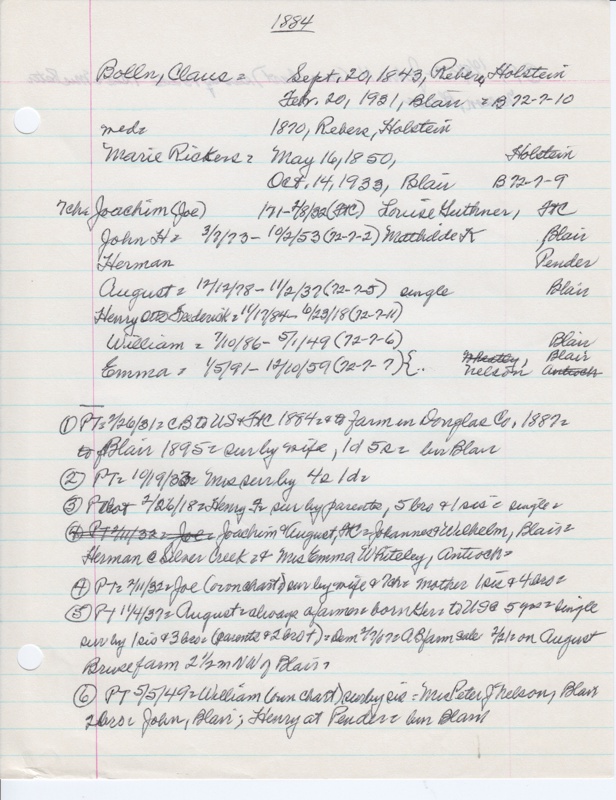 1884
Bolln, Claus = Sept. 20, 1843, Rebers, Holstein
Feb. 20, 1931, Blair = B 72-7-10
med = 1870, Rebers, Holstein
Marie Rickers = May 16, 1850, Holstein
Oct. 14, 1933, Blair B 72-7-9
7ch = Joachim (Joe) 171- 2/8/32 (FtC) Louise Guthner, FtC
John H = 3/7/73 - 10/2/53 (72-7-2) Mathilde K Blair
Herman Pender
August = 12/12/78 - 11/2/37 (72-7-5) single Blair
Henry Frederick = 11/17/84 - 6/23/18 (72-7-11)
William = 7/10/86 - 5/1/49 (72-7-6) Blair
Emma = 1/5/91 - 12/10/59 (72-7-7) {.. Wheatley, Blair
Nelson Antioch
① PT = 2/26/31 = c B to US & FtC 1884 = to farm in Douglas Co, 1887 =
to Blair 1895 = sur by wife, 1d 5s = bur Blair
② PT = 10/19/33 = Mrs sur by 4s 1d =
③ P obit 2/26/18 = Henry F = sur by parents, 5 bros & 1 sis = single =
④ PT 2/11/32 = Joe = Joachim & August, FtC = Johannes & Wilhelm, Blair =
Herman c Silver Creek = & Mrs Emma Whiteley, Antioch =
④ PT = 2/11/32 = Joe (own chart) sur by wife & 7ch = mother 1 sis & 4 bros =
⑤ PT 11/4/37 = August = always a farmer = born Ger = to USA 5 yrs = single
sur by 1 sis & 3 bros = (parents & 2 bros +) = Dem 2/7/07 = AB farm sale 2/21 = on August
Bruse farm 2 1/2 m NW of Blair =
⑥ PT 5/5/49 = William (own chart) sur by sis = Mrs Peter J Nelson, Blair
2 bros = John, Blair; Henry at Pender = bur Blair